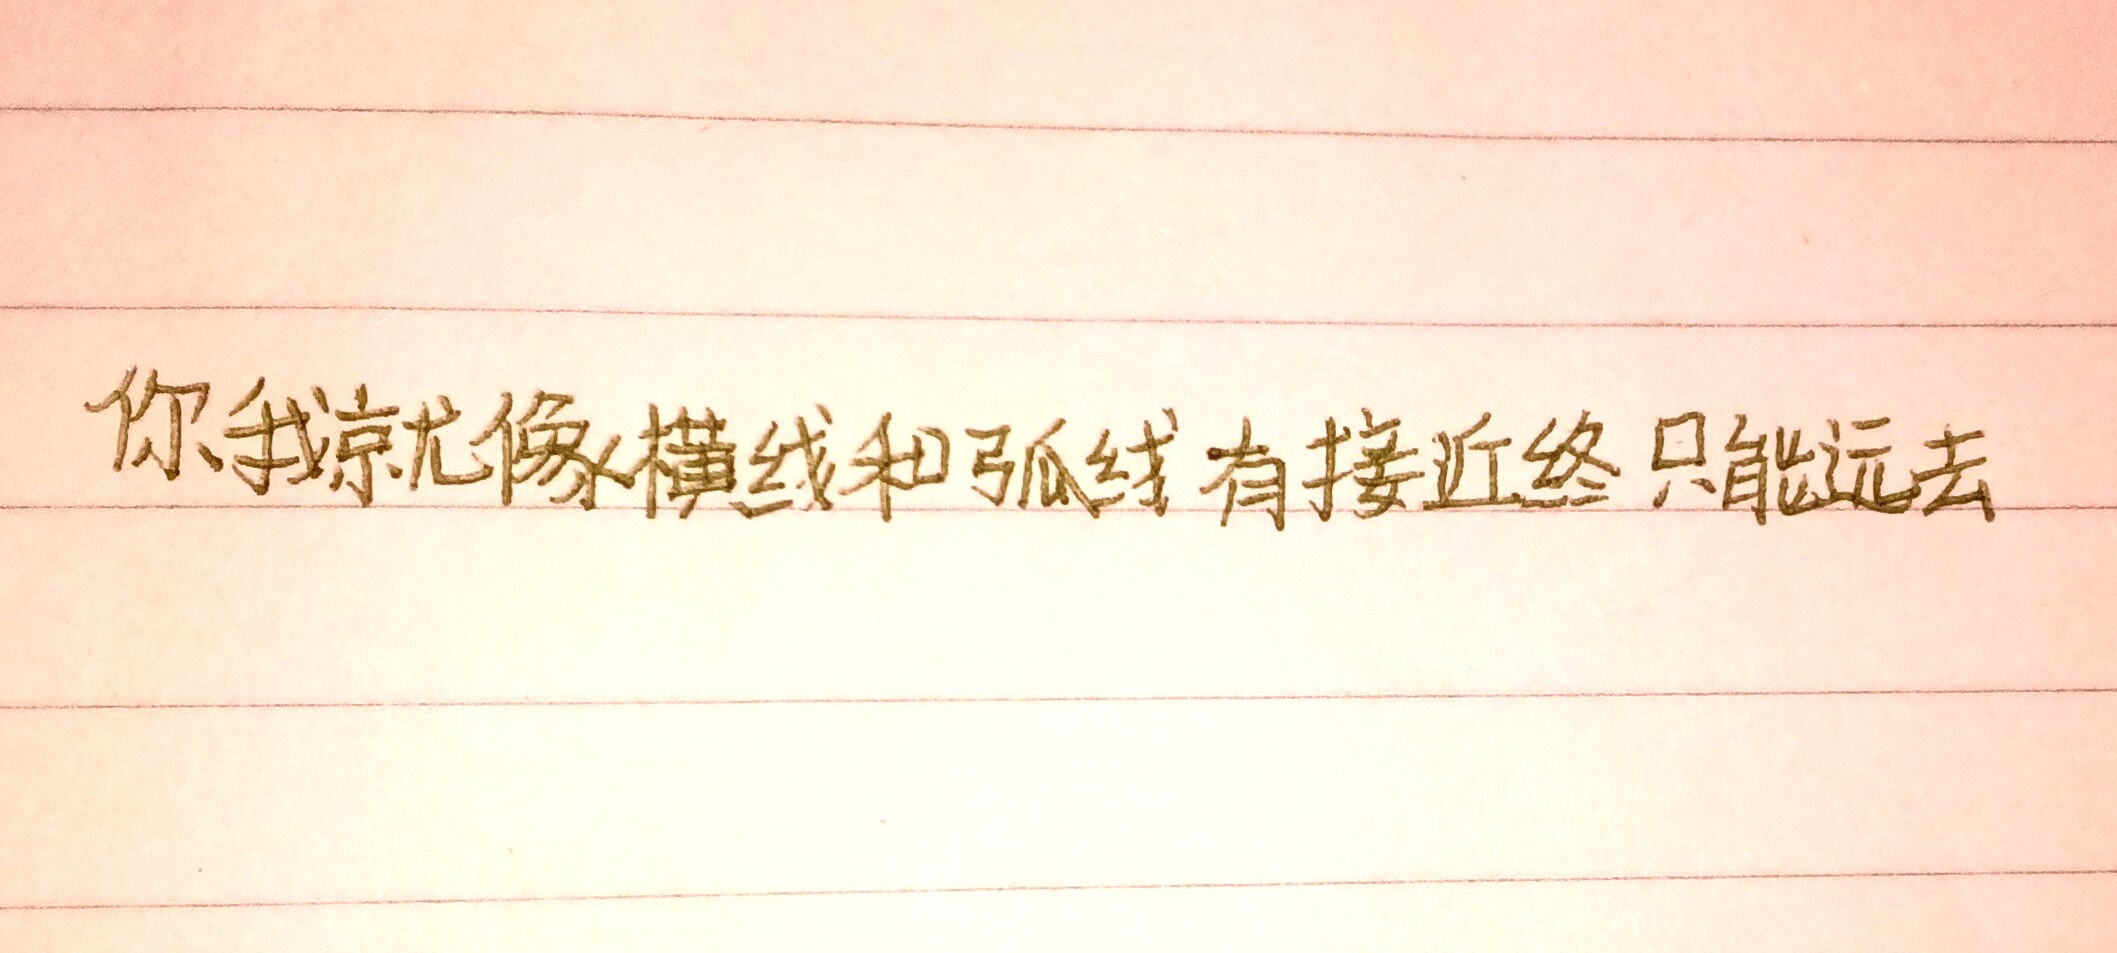 你我就像横线和弧线 有接近终 只能远去